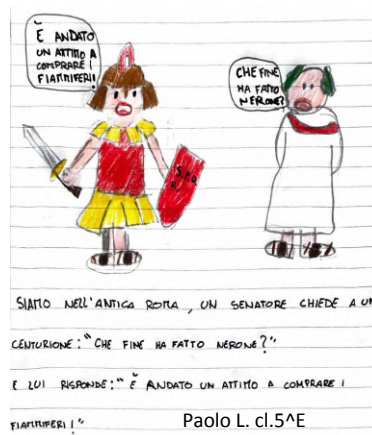 È ANDATO
UN ATTIMO A
COMPRARE I
FIAMMIFERI!
CHE FINE
HA FATTO
NERONE?
S.P.Q.
R.
SIAMO NELL'ANTICA ROMA, UN SENATORE CHIEDE A UN
CENTURIONE: "CHE FINE HA FATTO NERONE?"
E LUI RISPONDE: "È ANDATO UN ATTIMO A COMPRARE I
FIAMMIFERI!"
Paolo L. cl.5^E